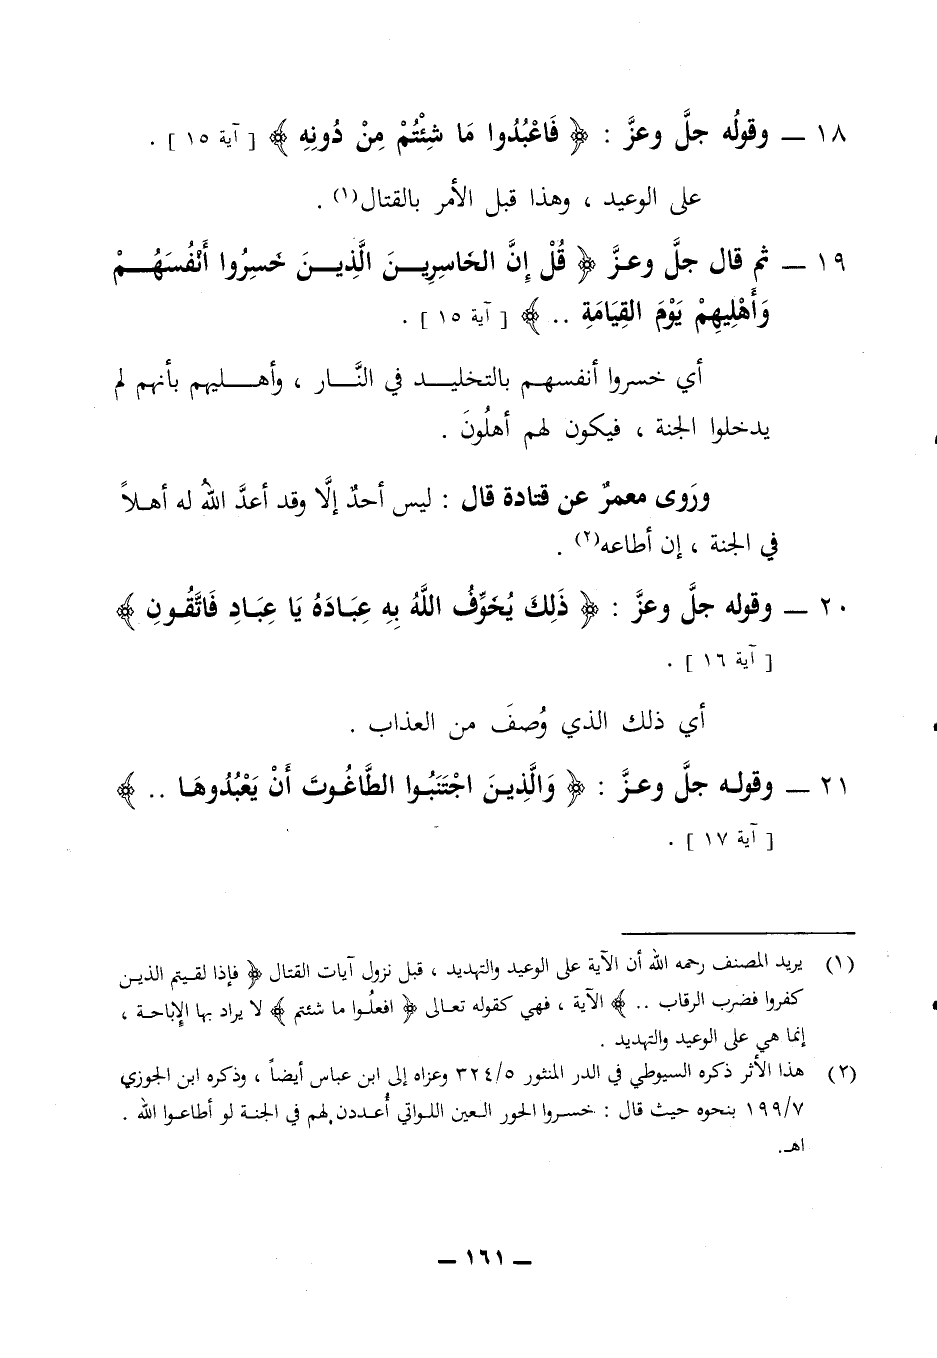 ١٨ ــ وقولُه جلَّ وعزَّ : ﴿ فَاعْبُدُوا مَا شِئْتُمْ مِنْ دُونِهِ ﴾ [ آية ١٥ ] .
على الوعيد ، وهذا قبل الأمر بالقتال(١) .
١٩ ــ ثم قال جلَّ وعزَّ ﴿ قُلْ إِنَّ الخَاسِرِينَ الَّذِينَ خَسِرُوا أَنْفُسَهُمْ
وَأَهْلِيهِمْ يَوْمَ القِيَامَةِ .. ﴾ [ آية ١٥ ] .
أي خسروا أنفسهم بالتخليد في النَّار ، وأهليهم بأنهم لم
يدخلوا الجنة ، فيكون لهم أهلُونَ .
ورَوى معمرٌ عن قتادة قال : ليس أحدٌ إلَّا وقد أعدَّ اللهُ له أهلاً
في الجنة ، إن أطاعه(٢) .
٢٠ ــ وقوله جلَّ وعزَّ : ﴿ ذَلِكَ يُخَوِّفُ اللَّهُ بِهِ عِبَادَهُ يَا عِبَادِ فَاتَّقُونِ ﴾
[ آية ١٦ ] .
أي ذلك الذي وُصفَ من العذاب .
٢١ ــ وقوله جلَّ وعزَّ : ﴿ وَالَّذِينَ اجْتَنَبُوا الطَّاغُوتَ أَنْ يَعْبُدُوهَا .. ﴾
[ آية ١٧ ] .
(١) يريد المصنف رحمه الله أن الآية على الوعيد والتهديد ، قبل نزول آيات القتال ﴿ فإذا لقيتم الذين
كفروا فضرب الرقاب .. ﴾ الآية ، فهي كقوله تعالى ﴿ افعلُوا ما شئتم ﴾ لا يراد بها الإباحة ،
إنما هي على الوعيد والتهديد .
(٢) هذا الأثر ذكره السيوطي في الدر المنثور ٣٢٤/٥ وعزاه إلى ابن عباس أيضاً ، وذكره ابن الجوزي
١٩٩/٧ بنحوه حيث قال : خسروا الحور العين اللواتي أُعددن لهم في الجنة لو أطاعوا الله .
اهـ.
ــ ١٦١ ــ